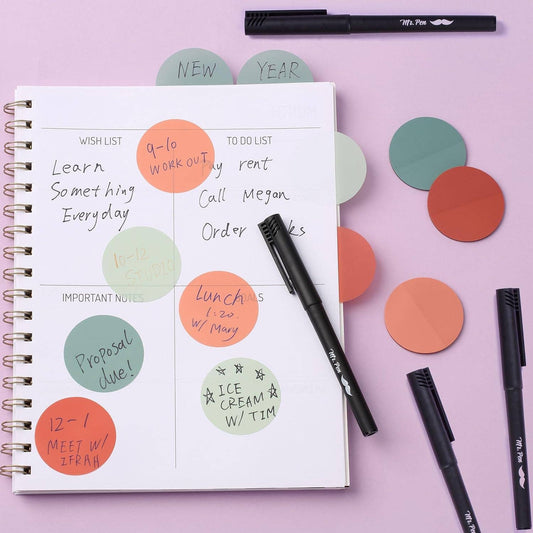 Mr. Pen
NEW YEAR
WISH LIST
TO DO LIST
Learn
Something
Everyday
9-10
WORK OUT
Pay rent
Call Megan
Order
10-12
STUDIO
IMPORTANT NOTES
Lunch
1:20
W/ Mary
Proposal
due!
ICE
CREAM
W/ TIM
12-1
MEET W/
IFRAH
Mr. Pen
Mr. Pen
Mr. Pen